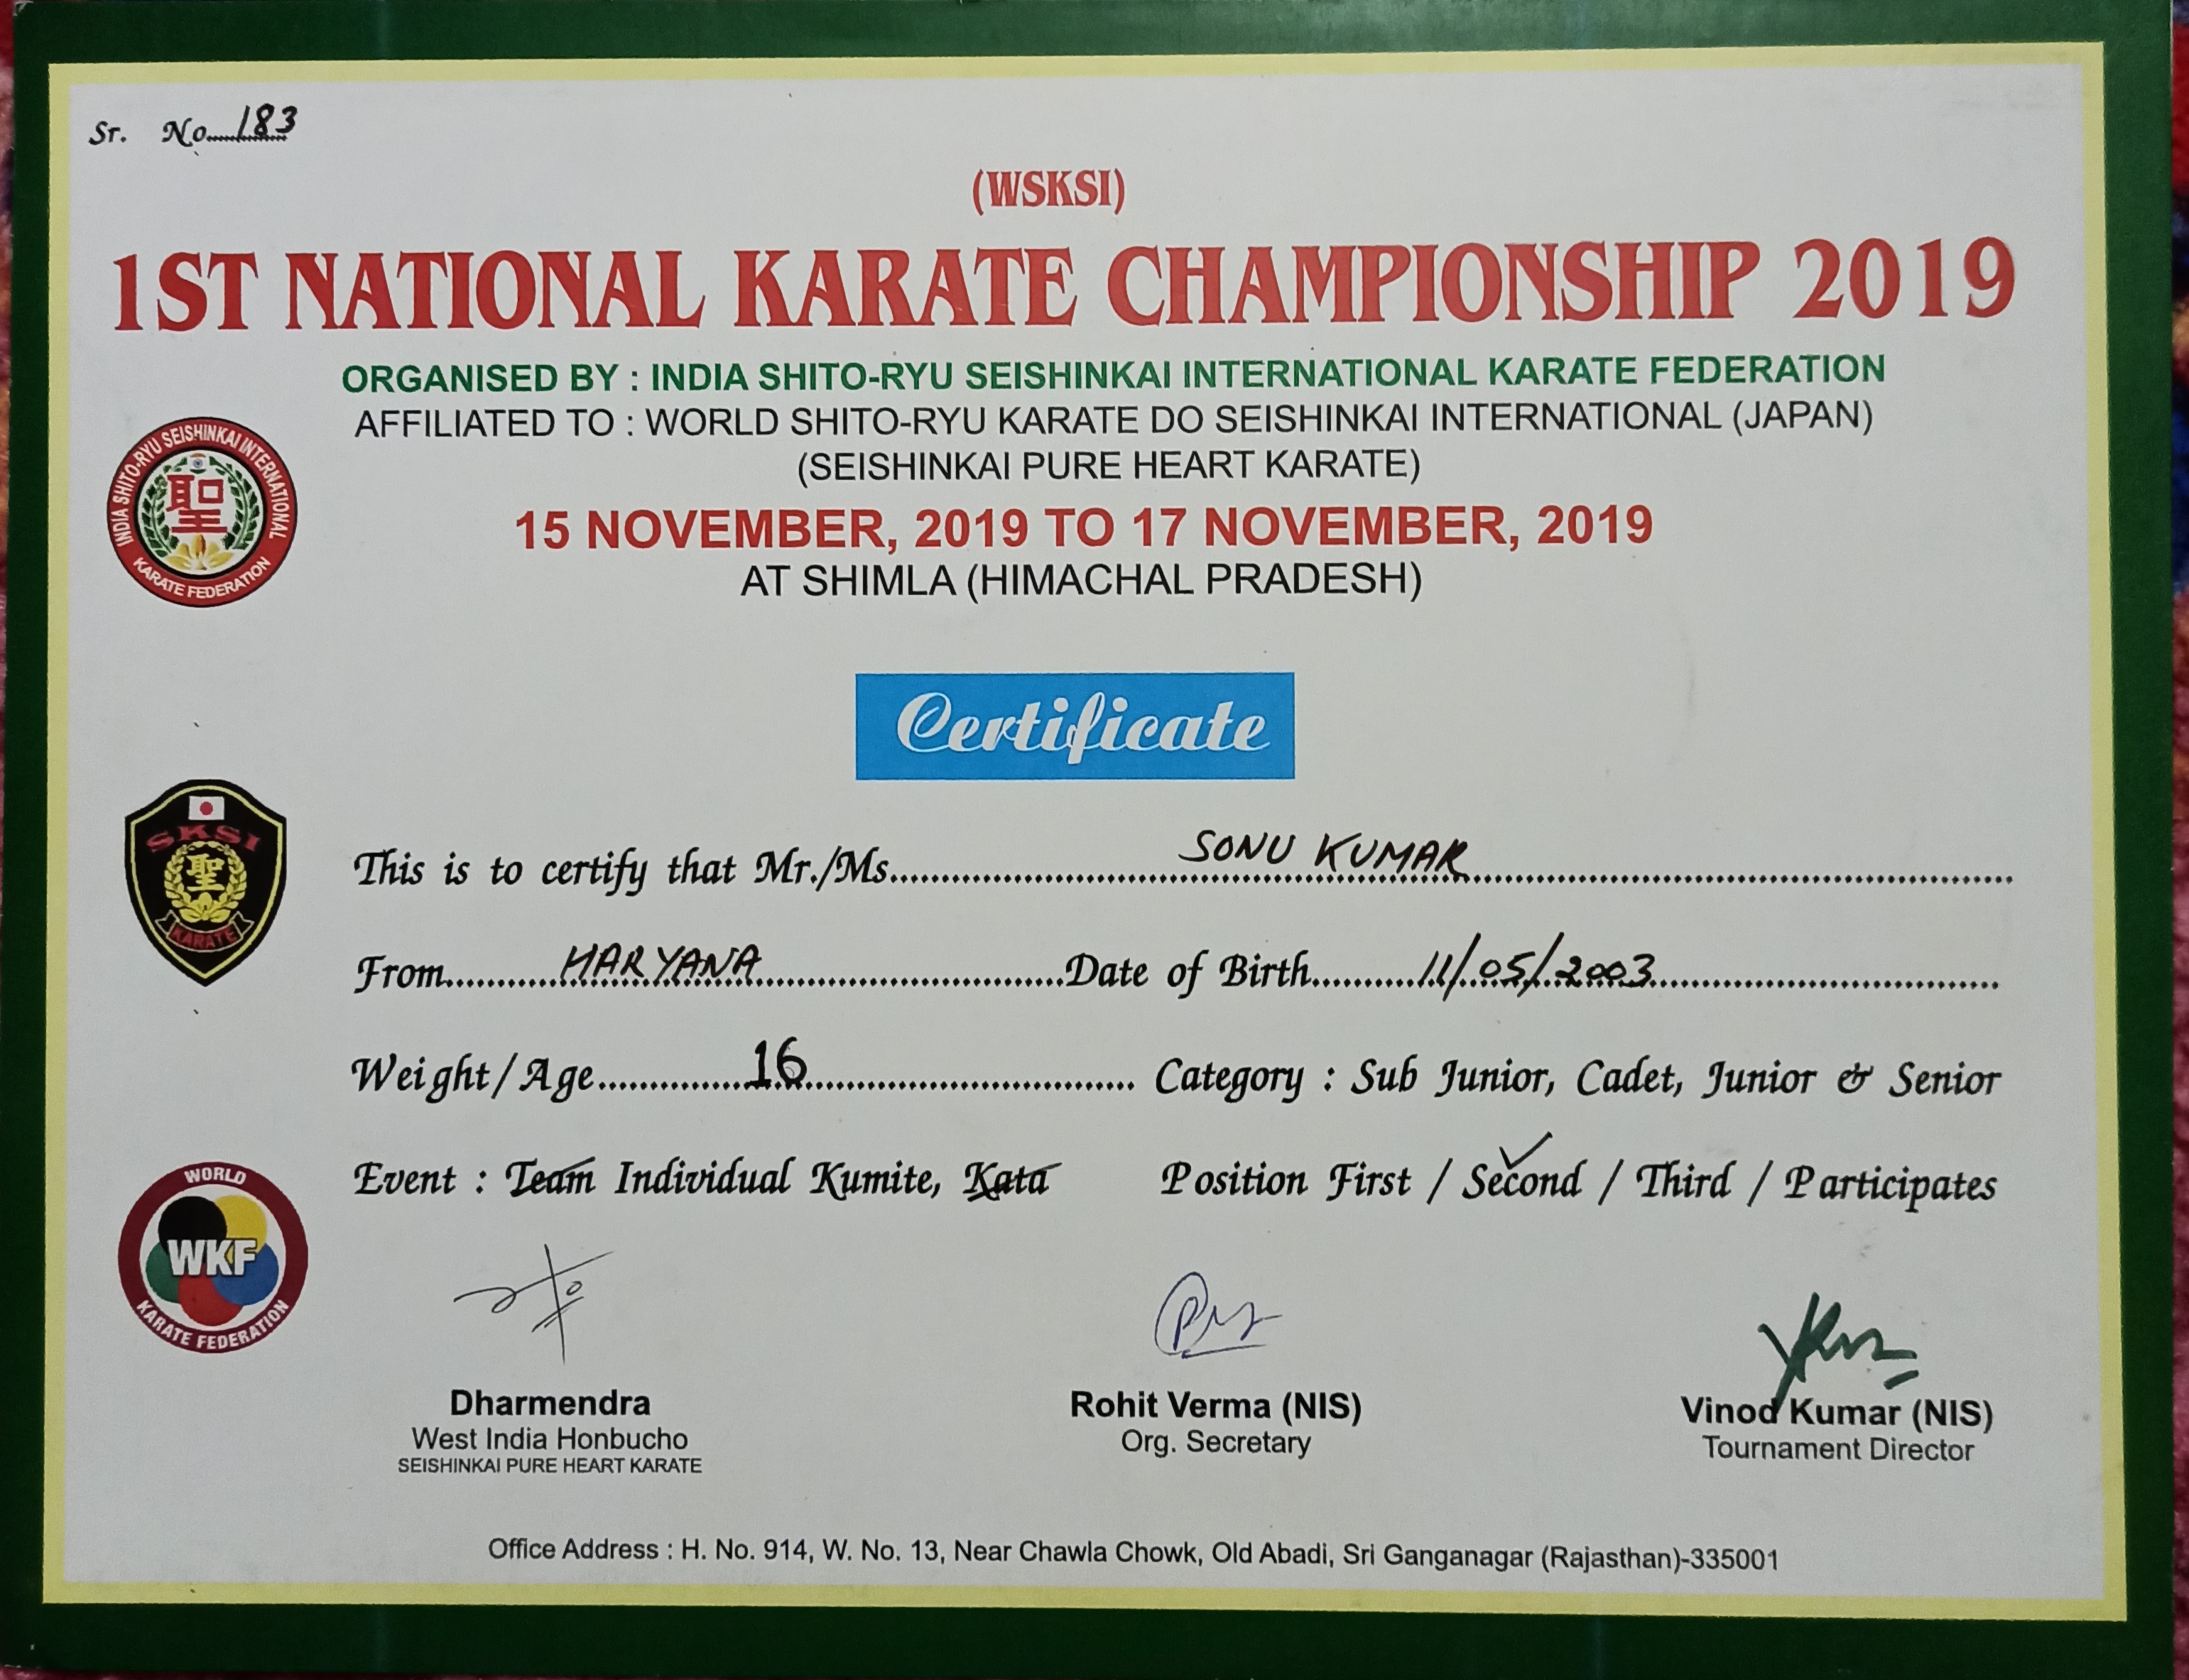 Sr. No. 183
(WSKSI)
1ST NATIONAL KARATE CHAMPIONSHIP 2019
ORGANISED BY : INDIA SHITO-RYU SEISHINKAI INTERNATIONAL KARATE FEDERATION
AFFILIATED TO : WORLD SHITO-RYU KARATE DO SEISHINKAI INTERNATIONAL (JAPAN)
(SEISHINKAI PURE HEART KARATE)
15 NOVEMBER, 2019 TO 17 NOVEMBER, 2019
AT SHIMLA (HIMACHAL PRADESH)
INDIA SHITO-RYU SEISHINKAI INTERNATIONAL
聖
KARATE FEDERATION
Certificate
SKSI
聖
KARATE
This is to certify that Mr./Ms. SONU KUMAR
From HARYANA Date of Birth 11/05/2003
Weight/Age 16 Category : Sub Junior, Cadet, Junior & Senior
Event : Team Individual Kumite, Kata Position First / Second / Third / Participates
WORLD
WKF
KARATE FEDERATION
Dharmendra
West India Honbucho
SEISHINKAI PURE HEART KARATE
Rohit Verma (NIS)
Org. Secretary
Vinod Kumar (NIS)
Tournament Director
Office Address : H. No. 914, W. No. 13, Near Chawla Chowk, Old Abadi, Sri Ganganagar (Rajasthan)-335001